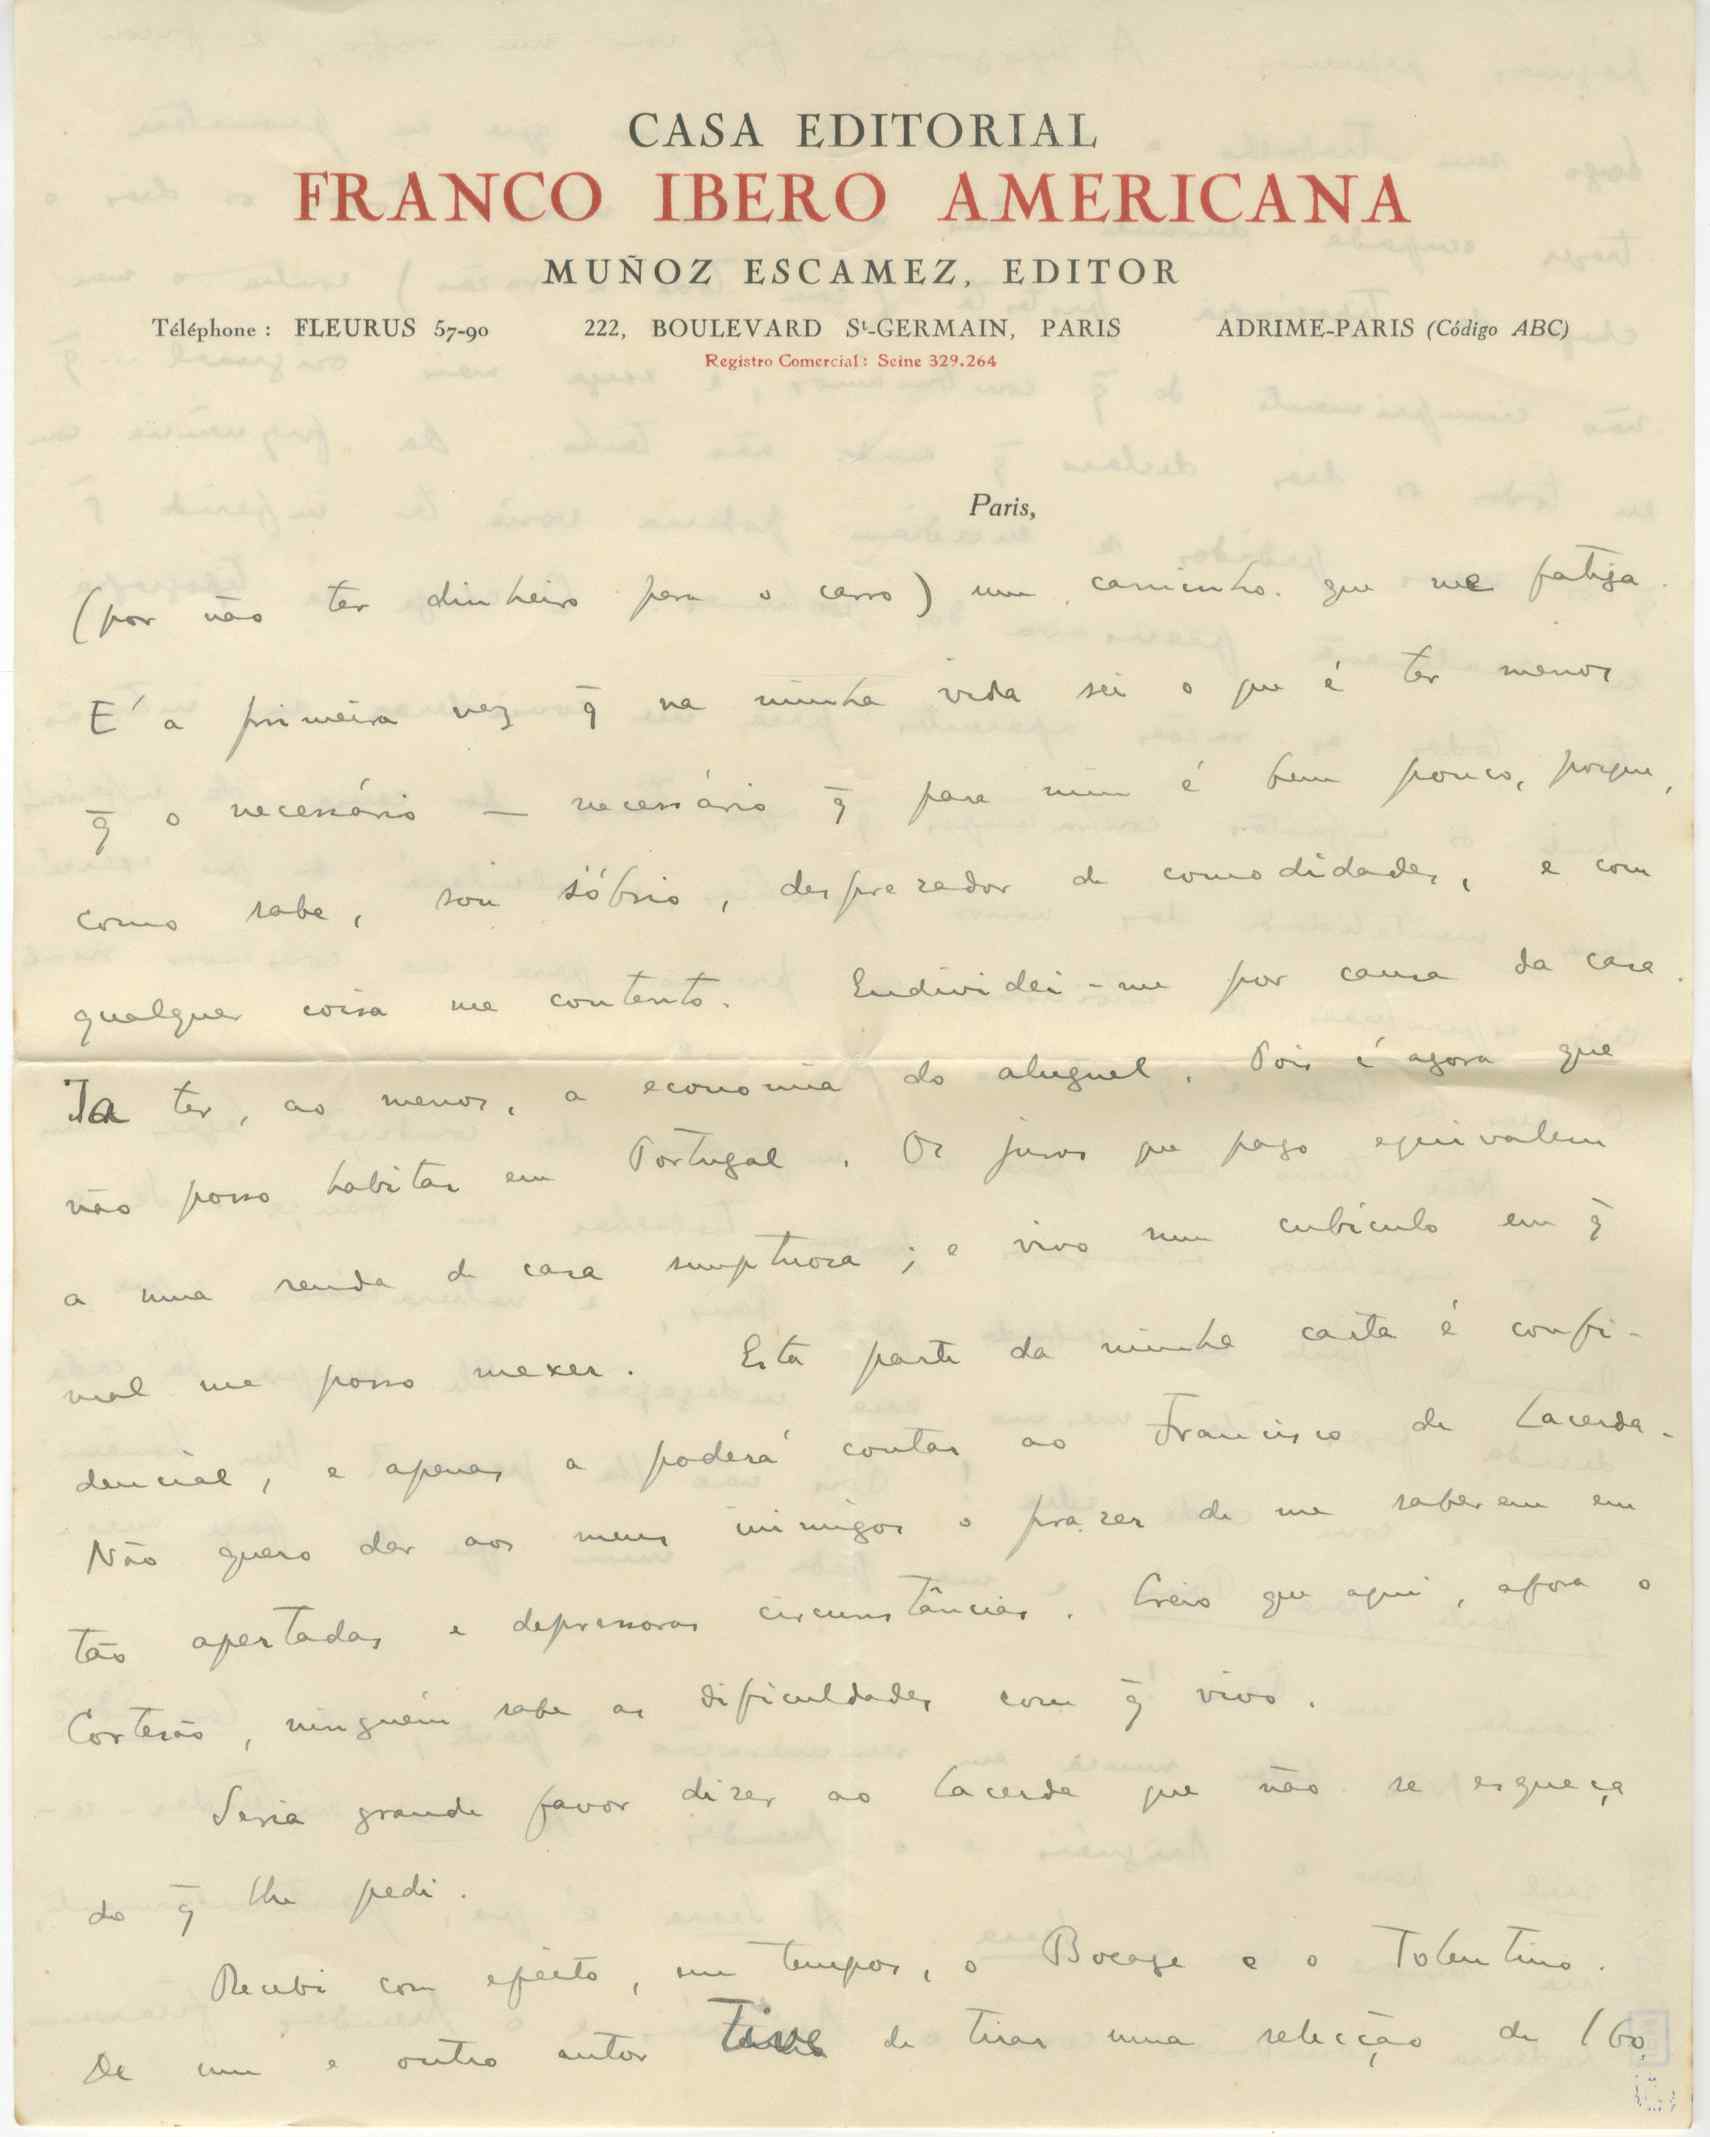 CASA EDITORIAL
FRANCO IBERO AMERICANA
MUÑOZ ESCAMEZ, EDITOR
Téléphone : FLEURUS 57-90 222, BOULEVARD St-GERMAIN, PARIS ADRIME-PARIS (Código ABC)
Registro Comercial : Seine 329.264
Paris,
(por não ter dinheiro para o carro) um caminho que me fatiga.
E' a primeira vez q̄ na minha vida sei o que é ter menos
q̄ o necessário — necessário q̄ para mim é bem pouco, porque,
como sabe, sou sóbrio, desprezador de comodidades, e com
qualquer coisa me contento. Endividei-me por causa da casa.
Ia ter, ao menos, a economia do aluguel. Pois é agora que
não posso habitar em Portugal. Os juros que pago equivalem
a uma renda de casa sumptuosa ; e vivo num cubículo em q̄
mal me posso mexer. Esta parte da minha carta é confi-
dencial, e apenas a poderá contar ao Francisco de Lacerda.
Não quero dar aos meus inimigos o prazer de me saberem em
tão apertadas e depressoras circunstâncias. Creio que aqui, áfora o
Cortesão, ninguém sabe as dificuldades com q̄ vivo.
Seria grande favor dizer ao Lacerda que não se esqueça
do q̄ lhe pedi.
Recebi com efeito, em tempos, o Bocage e o Tolentino.
De um e outro autor tive de tirar uma selecção de 160